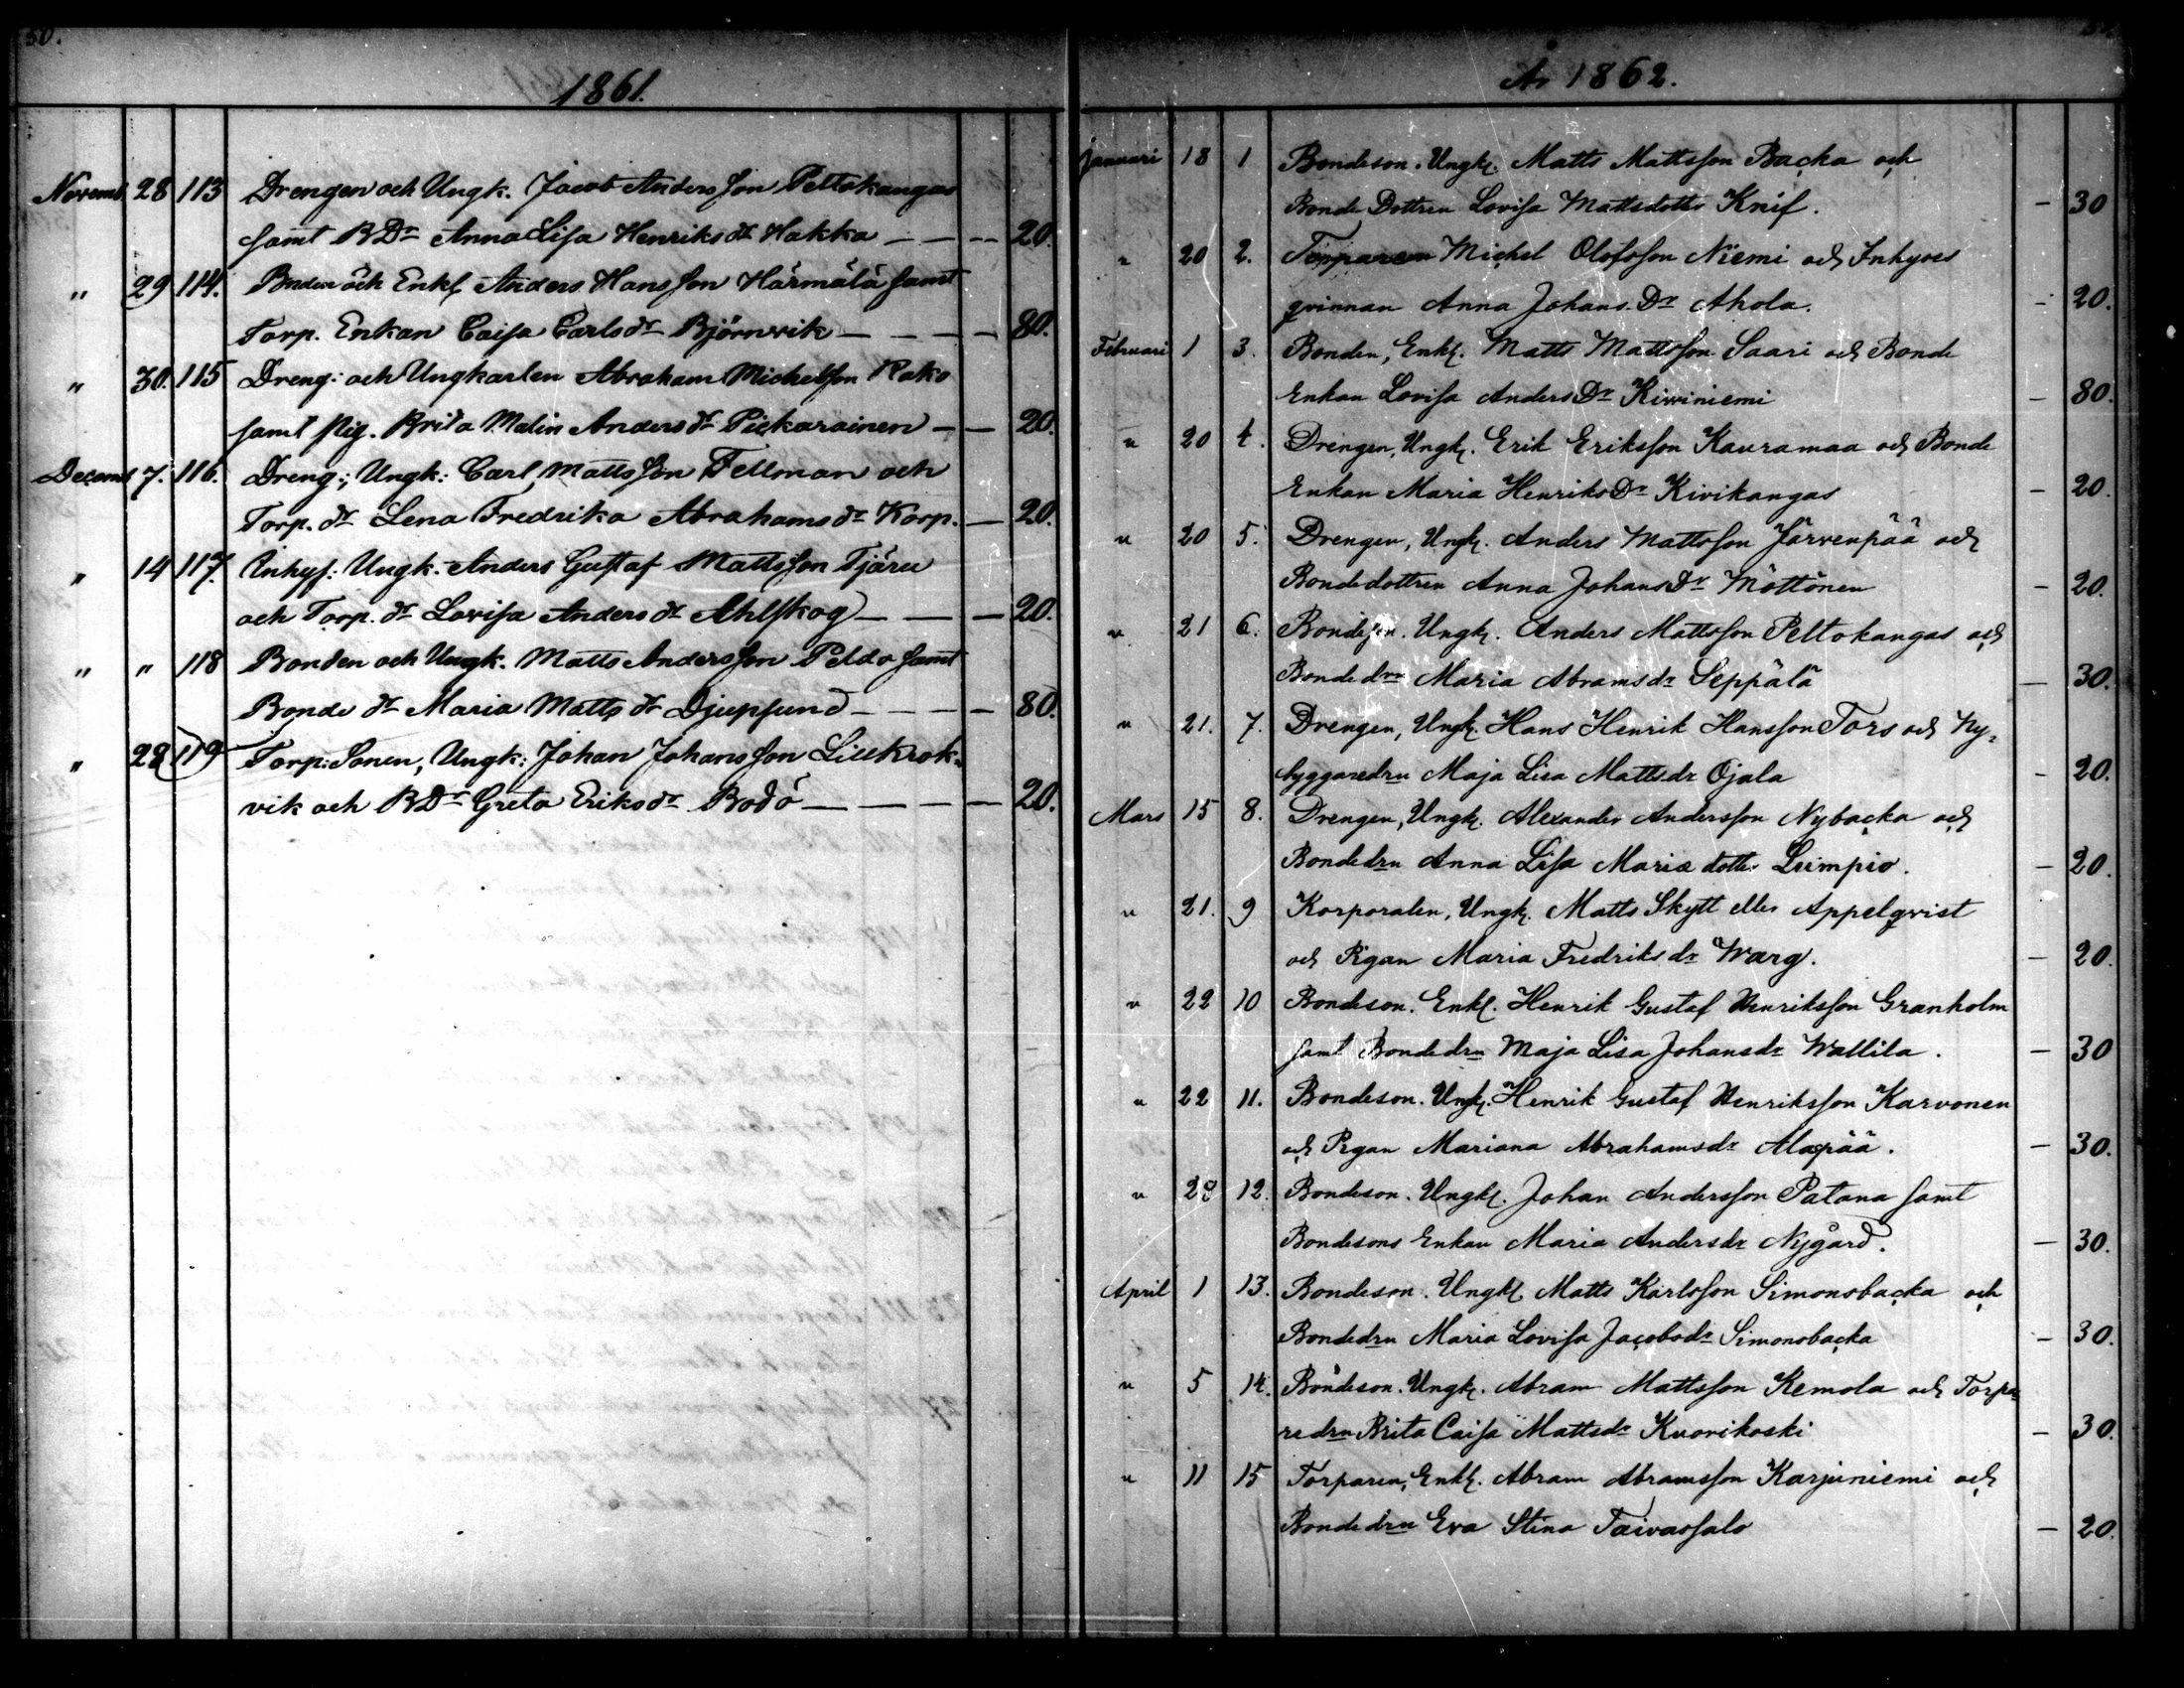 50.
1861.
Novemb. 28 113 Drengen och Ungk. Jacob Andersson Peltokangas
samt BDr Anna Lisa Henriksdr Hakka — — — 20.
" 29 114. Bonden och Enkl. Anders Hansson Härmälä samt
Torp. Enkan Caisa Carlsdr Björnvik — — — — 80.
" 30. 115 Dreng: och Ungkarlen Abraham Michelsson Rako
samt Pig. Brita Malin Andersdr Pickarainen — — 20.
Decemb 7. 116. Dreng:, Ungk: Carl Mattsson Fellman och
Torp. dr Lena Fredrika Abrahamsdr Korp. — 20.
" 14 117. Inhys: Ungk. Anders Gustaf Mattsson Tjäru
och Torp. dr Lovisa Andersdr Ahlskog — — — 20.
" " 118 Bonden och Ungk. Matts Andersson Peldo samt
Bonde dr Maria Matts dr Djupsund — — — — 80.
" 28 119 Torp: Sonen, Ungk: Johan Johansson Lillkrok-
vik och BDr Greta Eriksdr Bodö — — — — — 20.
År 1862.
Januari 18 1 Bondeson. Ungk. Matts Mattsson Backa och
Bonde Dottren Lovisa Mattsdotter Knif. — 30
" 20 2. Torparen Michel Olofsson Niemi och Inhyses
qvinnan Anna Johans Dr Ahola. — 20.
Februari 1 3. Bonden, Enkl. Matts Mattsson Saari och Bonde
Enkan Lovisa Anders Dr Kiviniemi — 80.
" 20 4. Drengen, Ungk. Erik Eriksson Kauramaa och Bonde
Enkan Maria Henriks Dr Kivikangas — 20.
" 20 5. Drengen, Ungk. Anders Mattsson Järvenpää och
Bondedottren Anna Johans Dr Möttönen — 20.
" 21 6. Bondeson. Ungk. Anders Mattsson Peltokangas och
Bondedrn Maria Abramsdr Seppälä — 30.
" 21. 7. Drengen, Ungk. Hans Henrik Hansson Tors och Ny-
byggaredrn Maja Lisa Mattsdr Ojala — 20.
Mars 15 8. Drengen, Ungk. Alexander Andersson Nybacka och
Bondedrn Anna Lisa Mariæ dotter Lumpio. — 20.
" 21. 9 Korporalen, Ungk. Matts Skytt eller Appelqvist
och Pigan Maria Fredriksdr Warg. — 20.
" 22 10 Bondeson. Enkl. Henrik Gustaf Henriksson Granholm
samt Bondedrn Maja Lisa Johansdr Wallila. — 30
" 22 11. Bondeson. Ungk. Henrik Gustaf Henriksson Karvonen
och Pigan Mariana Abrahamsdr Alapää. — 30.
" 28 12. Bondeson. Ungk. Johan Andersson Patana samt
Bondesons Enkan Maria Andersdr Nygård. — 30.
April 1 13. Bondeson. Ungk. Matts Karlsson Simonsbacka och
Bondedrn Maria Lovisa Jacobsdr Simonsbacka — 30.
" 5 14. Bondeson. Ungk. Abram Mattsson Kemola och Torpa-
redrn Brita Caisa Mattsdr Kuorikoski — 30.
" 11 15 Torparen, Enkl. Abram Abramsson Karjuniemi och
Bondedrn Eva Stina Taivassalo — 20.